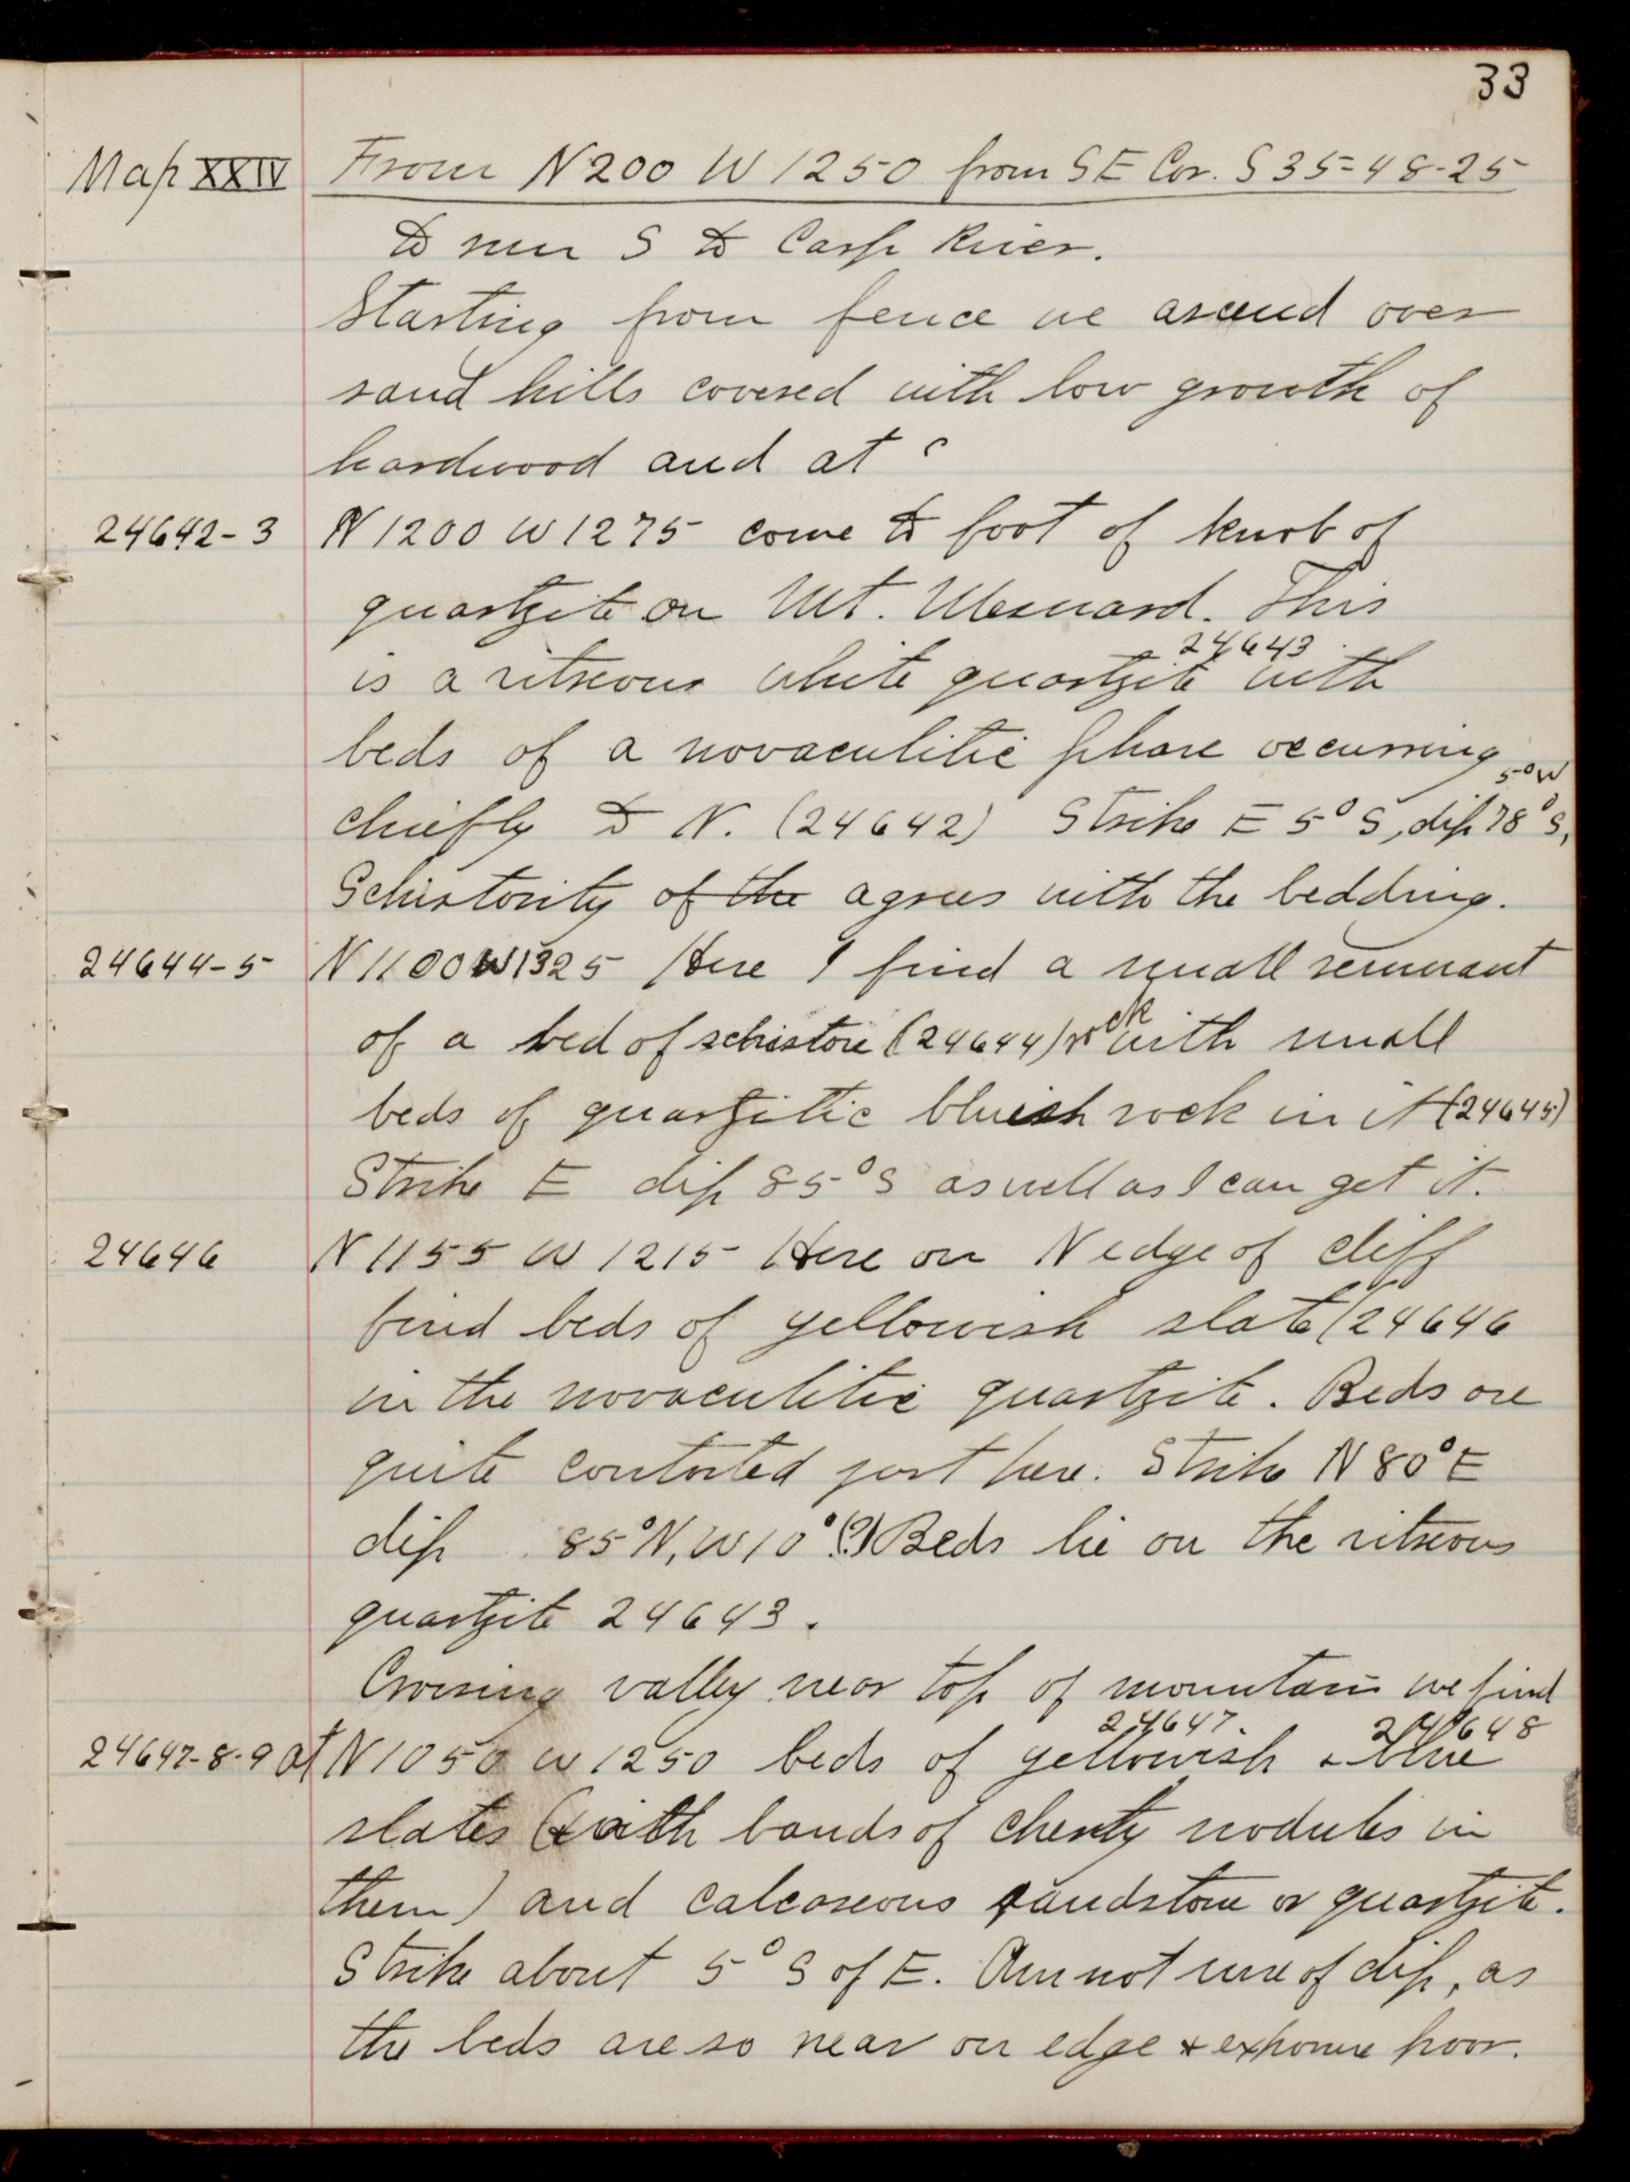 33
Map XXIV From N200 W1250 from SE Cor. S35-48-25
to run S to Carp River.
Starting from fence we ascend over
sand hills covered with low growth of
hardwood and at
24642-3 N1200 W1275 come to foot of knob of
quartzite on Mt. Mesnard. This
24643
is a vitreous white quartzite with
beds of a novaculitic phase occurring
5°W
chiefly to N. (24642) Strike E 5° S, dip 78° S,
Schistosity of the agrees with the bedding.
24644-5 N1100 W1325 Here I find a small remnant
of a bed of schistose (24644) rock with small
beds of quartzitic bluish rock in it (24645)
Strike E dip 85° S as well as I can get it.
24646 N1155 W1215 Here on N edge of cliff
find beds of yellowish slate (24646
in the novaculitic quartzite. Beds are
quite contorted just here. Strike N80°E
dip 85°N, W10° (?) Beds lie on the vitreous
quartzite 24643.
Crossing valley near top of mountain we find
24647. 24648
24647-8-9 at N1050 W1250 beds of yellowish & blue
slates (with bands of cherty nodules in
them) and calcareous sandstone or quartzite.
Strike about 5° S of E. Am not sure of dip, as
the beds are so near on edge & exposure poor.